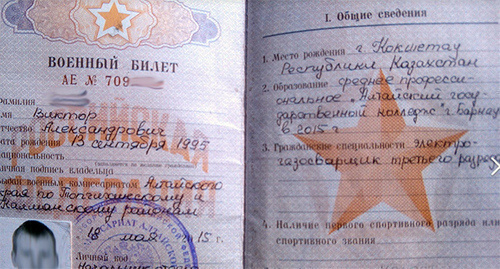 ВОЕННЫЙ БИЛЕТ
АЕ № 709
амилия
мя Виктор
тчество Александрович
ата рождения 13 сентября 1995
ациональность
ичная подпись владельца
ыдан военным комиссариатом Алтайского
края по Топчихинскому и
Калманскому районам
18 мая 15 г.
Личный код
I. Общие сведения
1. Место рождения г. Кокшетау
Республики Казахстан
2. Образование среднее професси-
ональное "Алтайский госу-
дарственный колледж" г. Барнау
в 2015 г
3. Гражданские специальности Электро-
газосварщик третьего разря
4. Наличие первого спортивного разряда или
спортивного звания